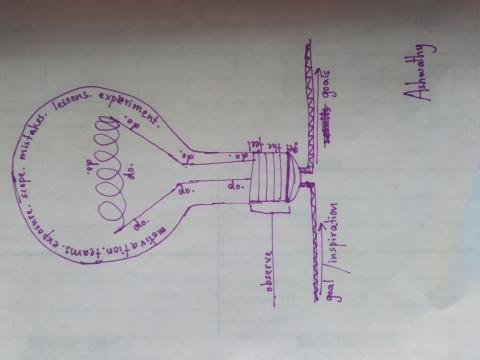 Ashwathy
experiment.
lessons.
mistakes.
scope.
exposure.
teams.
motivation.
do.
do.
do.
do.
do.
do.
do.
do.
feel
the
observe
goal / inspiration
goals